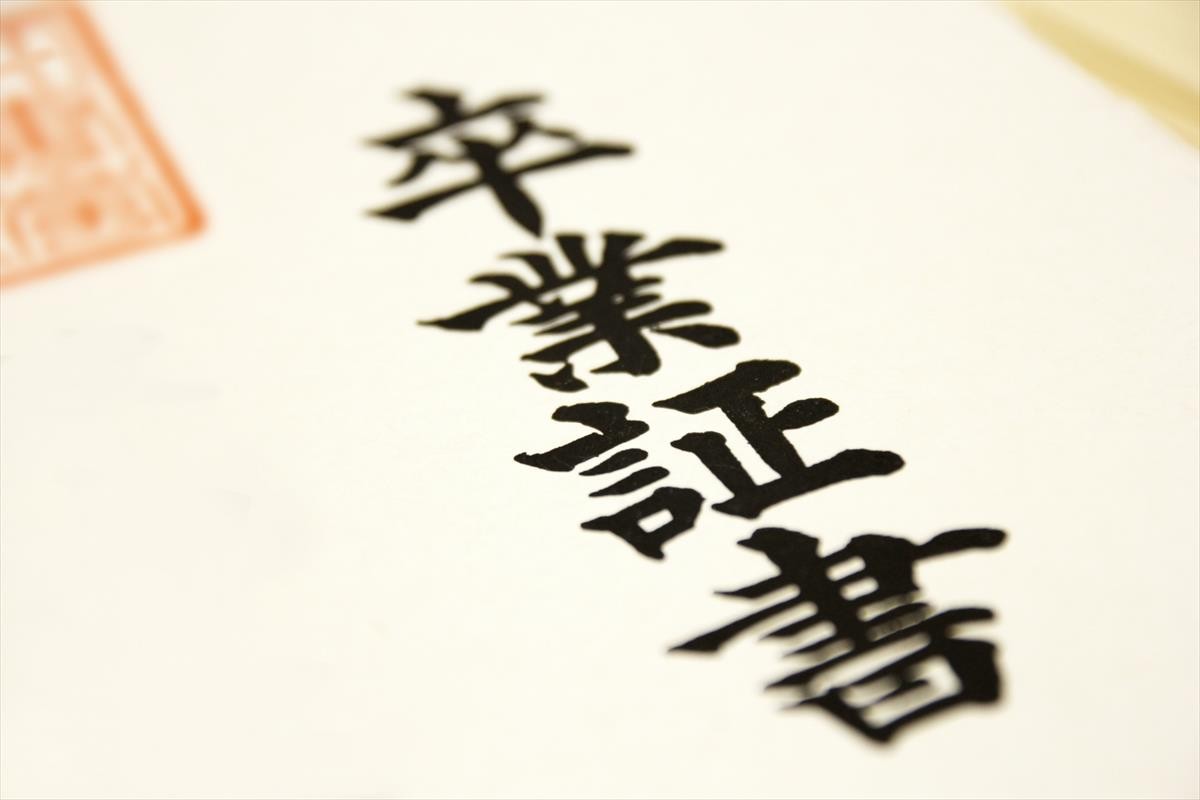 卒業証書